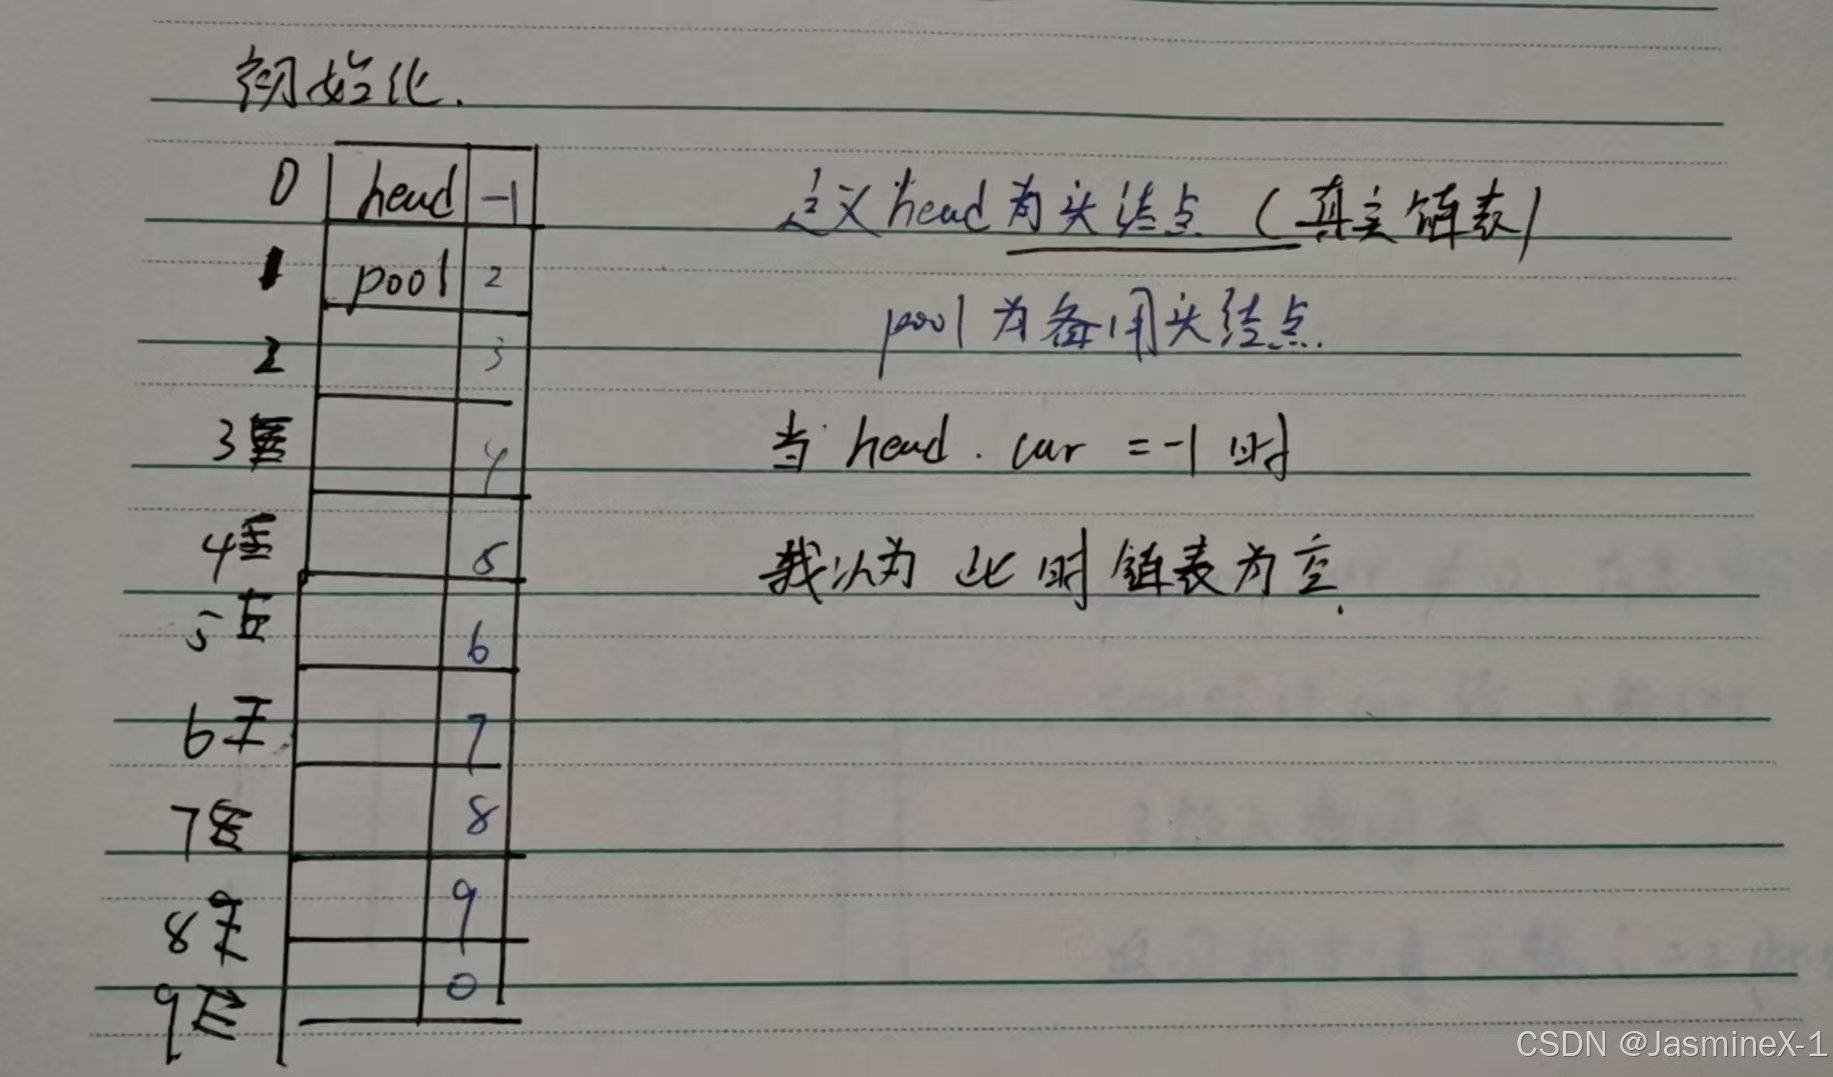 初始化.
0 head -1
1 pool 2
2 3
3 4
4 5
5 6
6 7
7 8
8 9
9 0
定义head为头结点（真实链表）
pool为备用头结点.
当head.cur=-1时
我认为此时链表为空.
CSDN @JasmineX-1